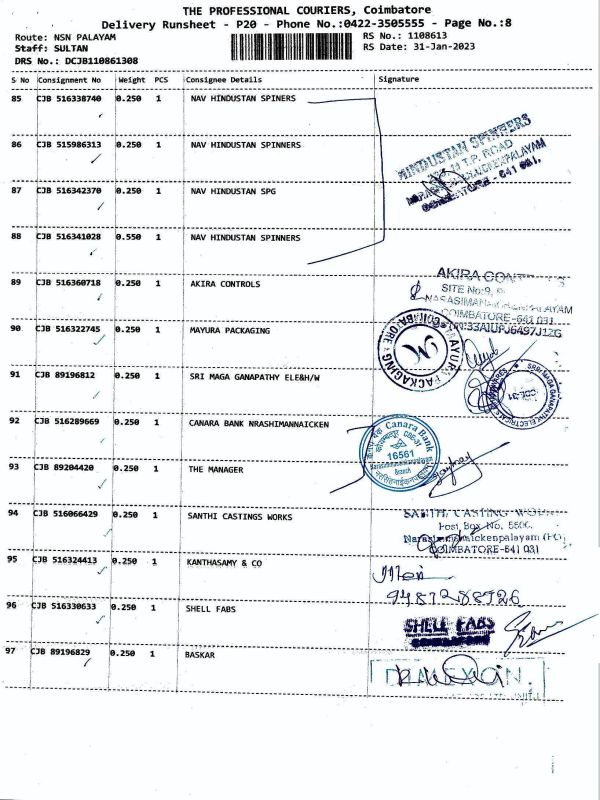 THE PROFESSIONAL COURIERS, Coimbatore
Delivery Runsheet - P20 - Phone No.:0422-3505555 - Page No.:8
Route: NSN PALAYAM
RS No.: 1108613
Staff: SULTAN
RS Date: 31-Jan-2023
DRS No.: DCJB110861308
S No Consignment No Weight PCS Consignee Details Signature
85 CJB 516338740 0.250 1 NAV HINDUSTAN SPINERS
86 CJB 515986313 0.250 1 NAV HINDUSTAN SPINNERS
HINDUSTAN SPINNERS
T.P. ROAD
COIMBATORE - 641 031.
87 CJB 516342370 0.250 1 NAV HINDUSTAN SPG
88 CJB 516341028 0.550 1 NAV HINDUSTAN SPINNERS
89 CJB 516360718 0.250 1 AKIRA CONTROLS
AKIRA
SITE No:9,
COIMBATORE-641 031
90 CJB 516322745 0.250 1 MAYURA PACKAGING
MAYURA PACKAGING
COIMBATORE
91 CJB 89196812 0.250 1 SRI MAGA GANAPATHY ELE&H/W
SRRI MAGA GANAPATHY ELECTRICAL
CBE-31
92 CJB 516289669 0.250 1 CANARA BANK NRASHIMANNAICKEN
Canara Bank
CBE-31
16561
Branch
93 CJB 89204420 0.250 1 THE MANAGER
94 CJB 516066429 0.250 1 SANTHI CASTINGS WORKS
SANTHI CASTING WORKS
Post Box No. 5606,
Narasimmanaickenpalayam (PO)
COIMBATORE-641 031
95 CJB 516324413 0.250 1 KANTHASAMY & CO
9487288926
96 CJB 516330633 0.250 1 SHELL FABS
SHELL FABS
97 CJB 89196829 0.250 1 BASKAR